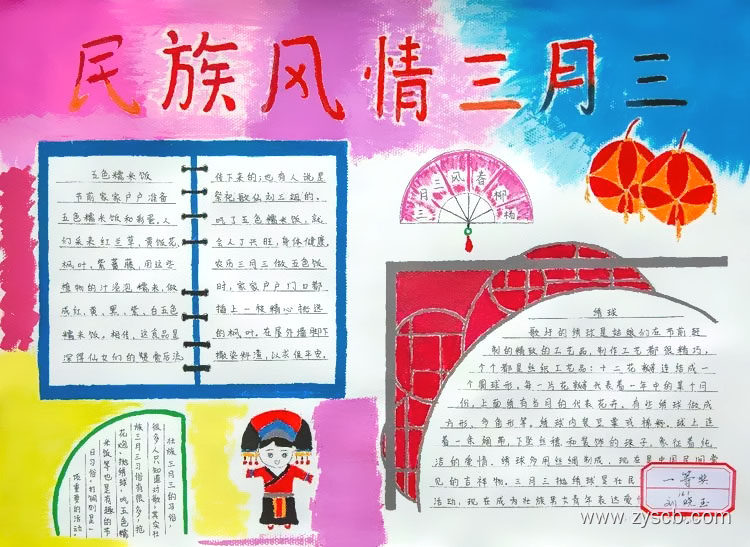 民族风情三月三
五色糯米饭
节前家家户户准备
五色糯米饭和彩蛋。人
们采来红兰草、黄饭花、
枫叶、紫蕃藤,用这些
植物的汁浸泡糯米,做
成红、黄、黑、紫、白五色
糯米饭。相传,这食品是
深得仙女们的赞赏后流
传下来的;也有人说是
祭祀歌仙刘三姐的。
吃了五色糯米饭,就
会人丁兴旺,身体健康。
农历三月三做五色饭
时,家家户户门口都
插上一枝精心挑选
的枫叶。在屋外墙脚下
撒染料渣,以求保平安。
三月三风春柳杨
绣球
歌圩的绣球是姑娘们在节前赶
制的精致的工艺品,制作工艺都很精巧,
个个都是丝织工艺品:十二花瓣连结成一
个圆球形,每一片花瓣代表着一年中的某个月
份,上面绣有当月的代表花卉。有些绣球做成
方形、多角形等。绣球内装豆粟或棉籽。球上连
着一条绸带,下坠丝穗和装饰的珠子,象征着纯
洁的爱情。绣球多用丝绸制成,现在是中国民间常
见的吉祥物。三月三抛绣球是壮民
活动,现在成为壮族男女青年表达爱
壮族三月三的习俗,
很多人只知道对歌,其实壮
族三月三习俗有很多,抢
花炮、抛绣球、吃五色糯
米饭等也是有趣的节
日习俗,打铜别是一
项重要的活动。
一等奖
161
刘晓玉
www.zyscb.com